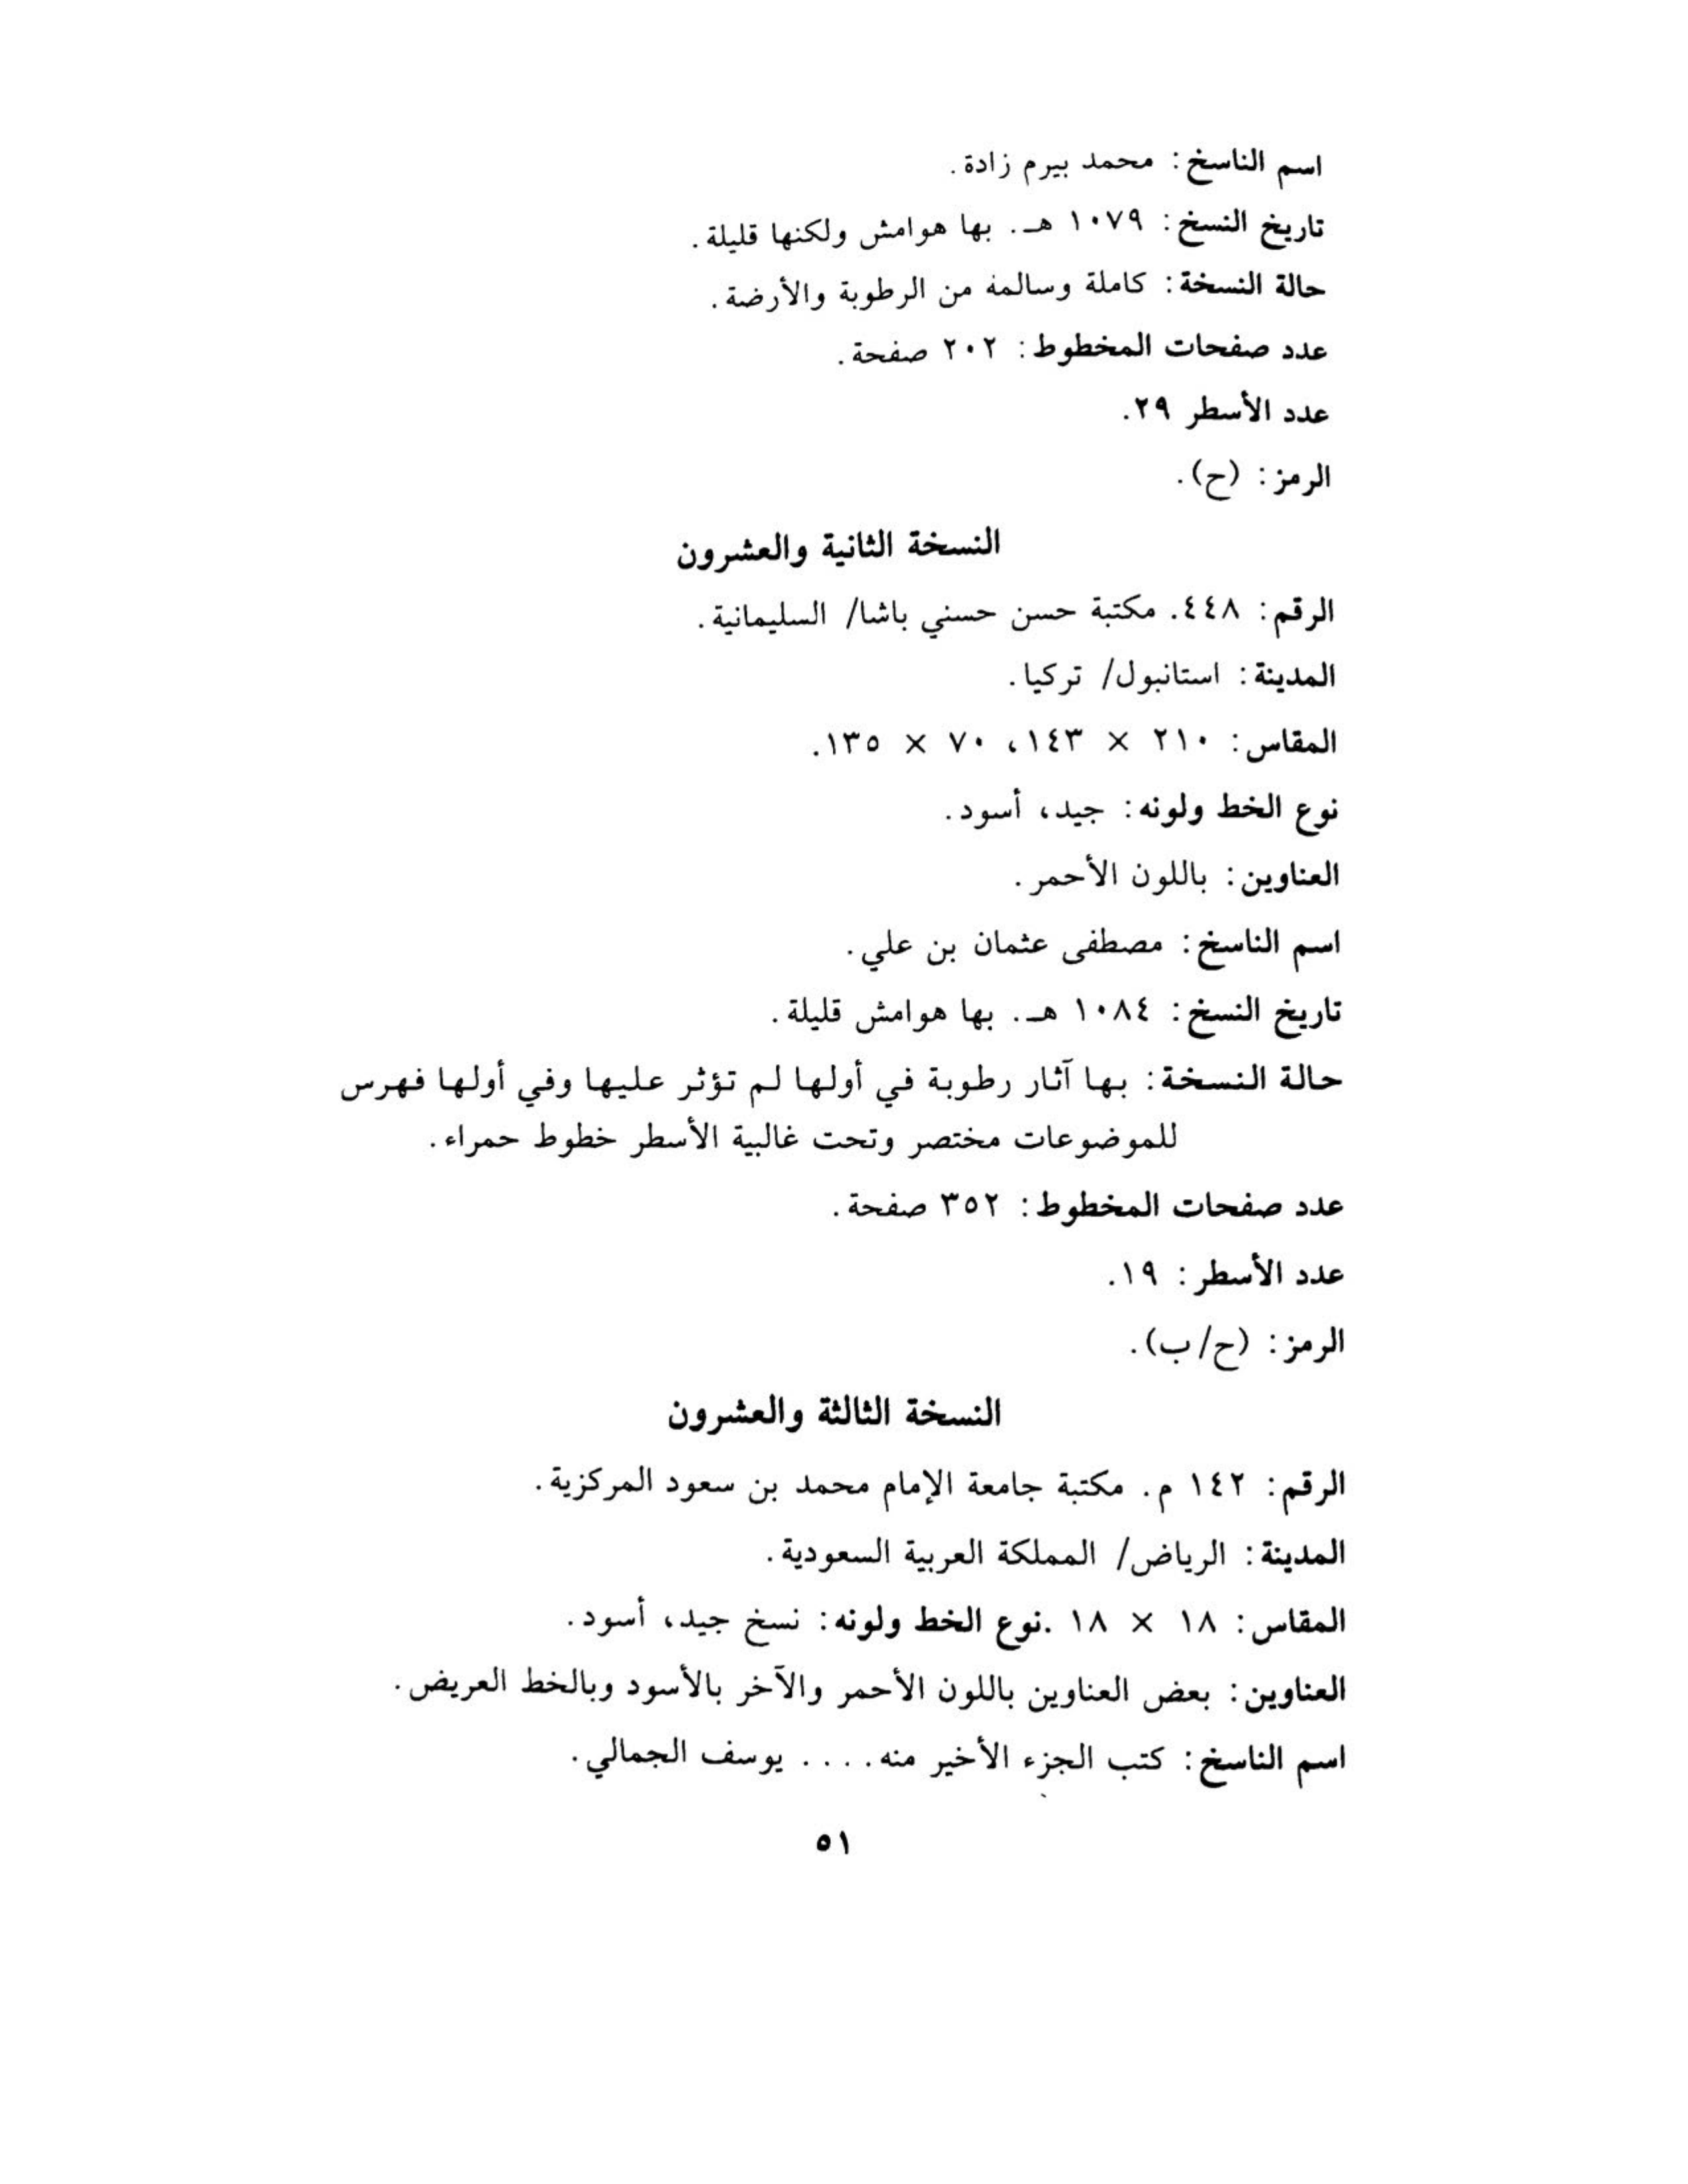 اسم الناسخ: محمد بيرم زادة.
تاريخ النسخ: ١٠٧٩ هـ. بها هوامش ولكنها قليلة.
حالة النسخة: كاملة وسالمه من الرطوبة والأرضة.
عدد صفحات المخطوط: ٢٠٢ صفحة.
عدد الأسطر ٢٩.
الرمز: (ح).
النسخة الثانية والعشرون
الرقم: ٤٤٨. مكتبة حسن حسني باشا/ السليمانية.
المدينة: استانبول/ تركيا.
المقاس: ٢١٠ × ١٤٣، ٧٠ × ١٣٥.
نوع الخط ولونه: جيد، أسود.
العناوين: باللون الأحمر.
اسم الناسخ: مصطفى عثمان بن علي.
تاريخ النسخ: ١٠٨٤ هـ. بها هوامش قليلة.
حالة النسخة: بها آثار رطوبة في أولها لم تؤثر عليها وفي أولها فهرس
للموضوعات مختصر وتحت غالبية الأسطر خطوط حمراء.
عدد صفحات المخطوط: ٣٥٢ صفحة.
عدد الأسطر: ١٩.
الرمز: (ح/ب).
النسخة الثالثة والعشرون
الرقم: ١٤٢ م. مكتبة جامعة الإمام محمد بن سعود المركزية.
المدينة: الرياض/ المملكة العربية السعودية.
المقاس: ١٨ × ١٨ .نوع الخط ولونه: نسخ جيد، أسود.
العناوين: بعض العناوين باللون الأحمر والآخر بالأسود وبالخط العريض.
اسم الناسخ: كتب الجزء الأخير منه.... يوسف الجمالي.
٥١